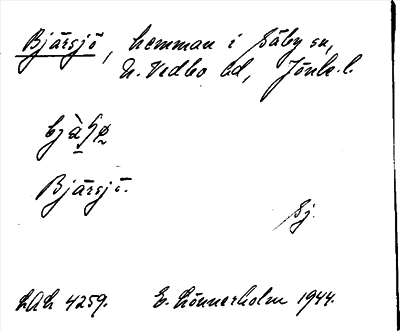 Bjärsjö, hemman i Säby sn,
N. Vedbo hd, Jönk. l.
Bjärsjö.
Sj.
LAL 4259. E. Lönnerholm 1944.